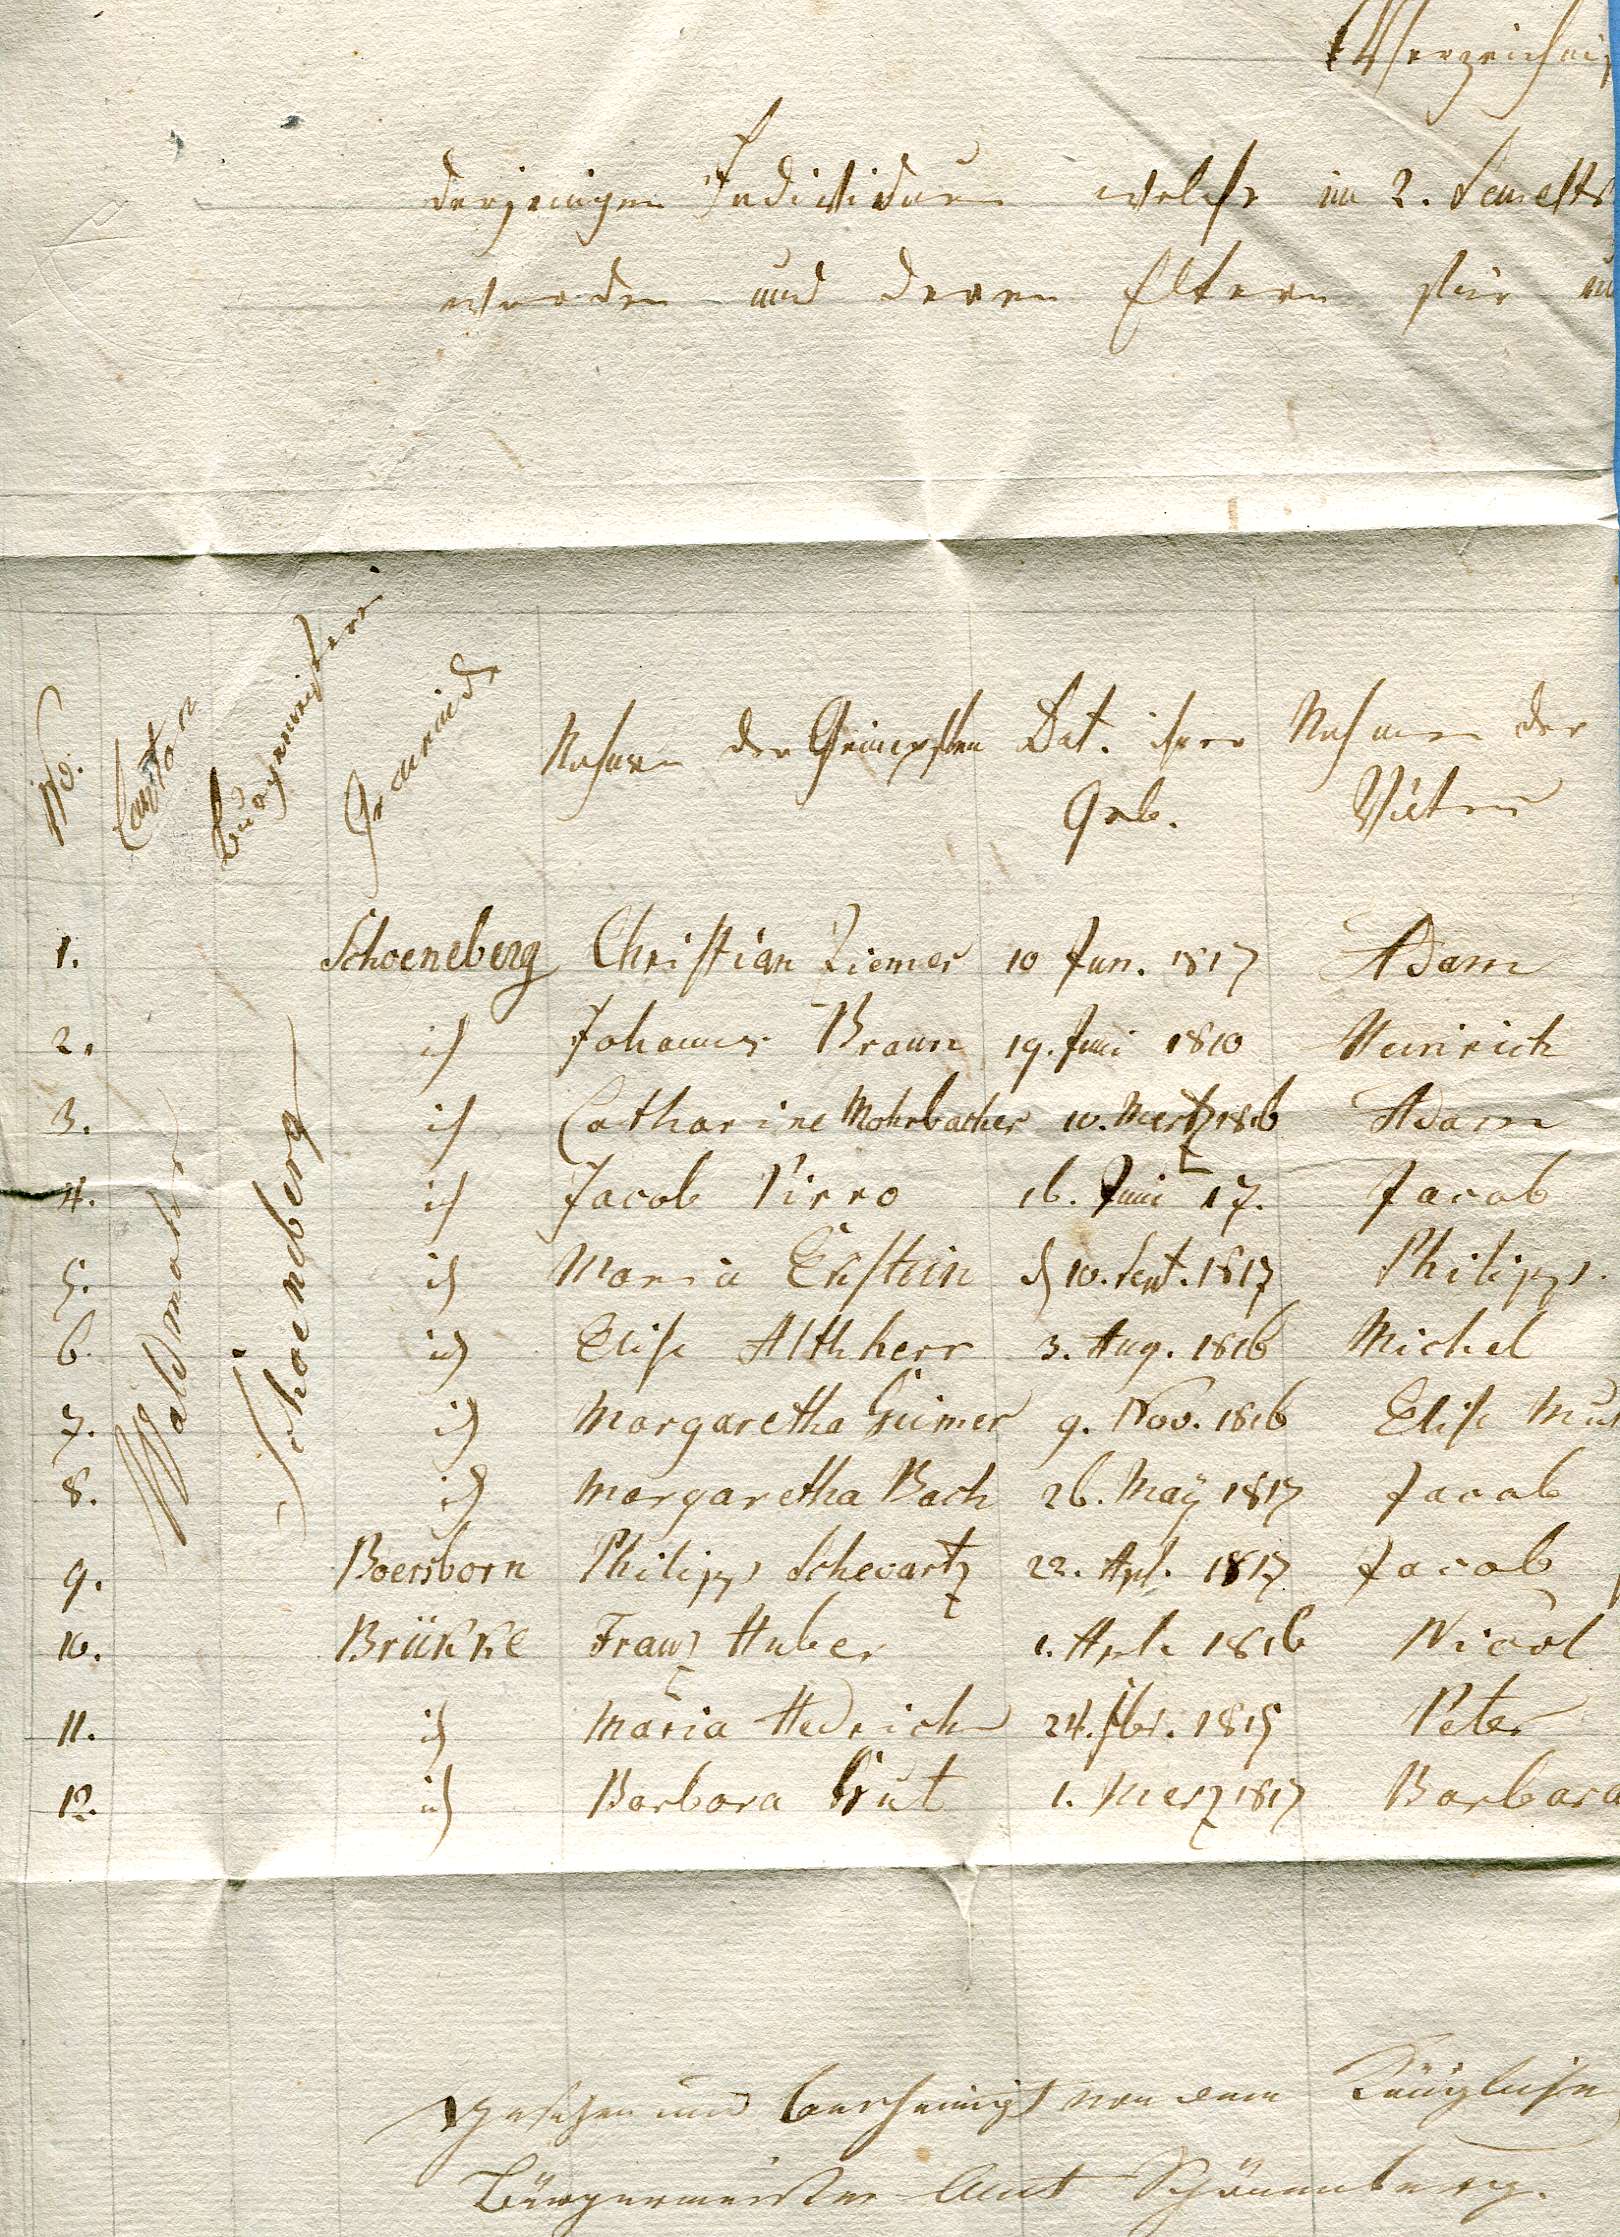 Verzeichniß
derjenigen Individuen welche im 2. Semest
wurden und deren Eltern für
No. Canton Bürgermeisterei Gemeinde Nahmen der Geimpften Dat. ihrer Geb. Nahmen der Väter
Waldmohr
Schoeneberg
1. Schoeneberg Christian Ziemer 10 Jun. 1817 Adam
2. id Johannes Braun 19. Juni 1810 Heinrich
3. id Catharine Mohrbacher 10. Mertz 1816 Adam
4. id Jacob Pirro 16. Juni 17. Jacob
5. id Maria Ekstein 10. Sept. 1817 Philipp
6. id Elise Althherr 3. Aug. 1816 Michel
7. id Margaretha 9. Nov. 1816 Elise
8. id Margaretha Bach 26. Maÿ 1817 Jacob
9. Boersborn Philipp Schwartz 22. Apl. 1817 Jacob
10. Brükke Franz Huber 1. 1816 Nicol
11. id Maria Hedrich 24. 1815 Peter
12. id Barbara Gut 1. Merz 1817 Barbara
Gesehen und bescheinigt von dem Königlichen
Bürgermeister Amt Schönenberg.